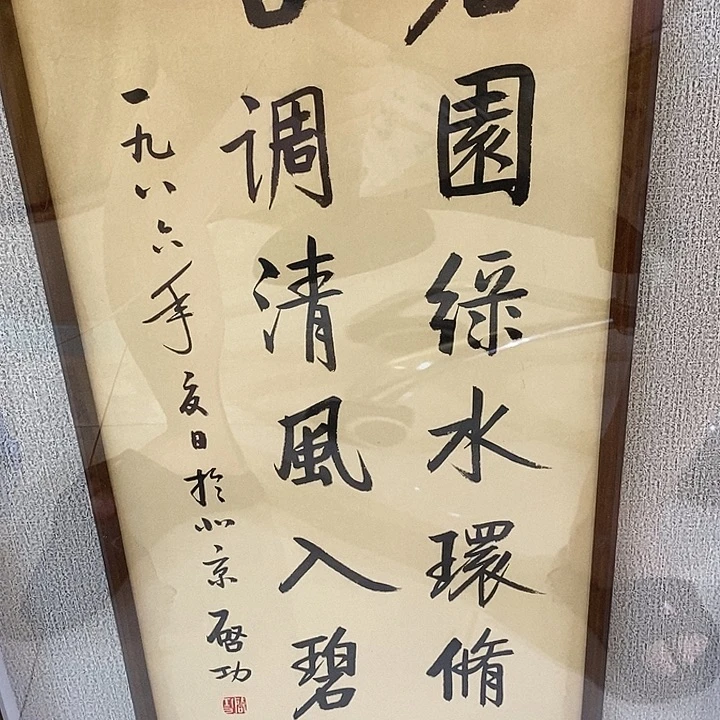 園綠水環脩
調清風入碧
一九八六年夏日於北京啓功